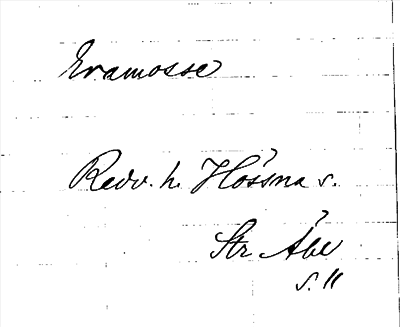 Eramosse
Redv. h. Hössna s.
Str Åbe
s. 11